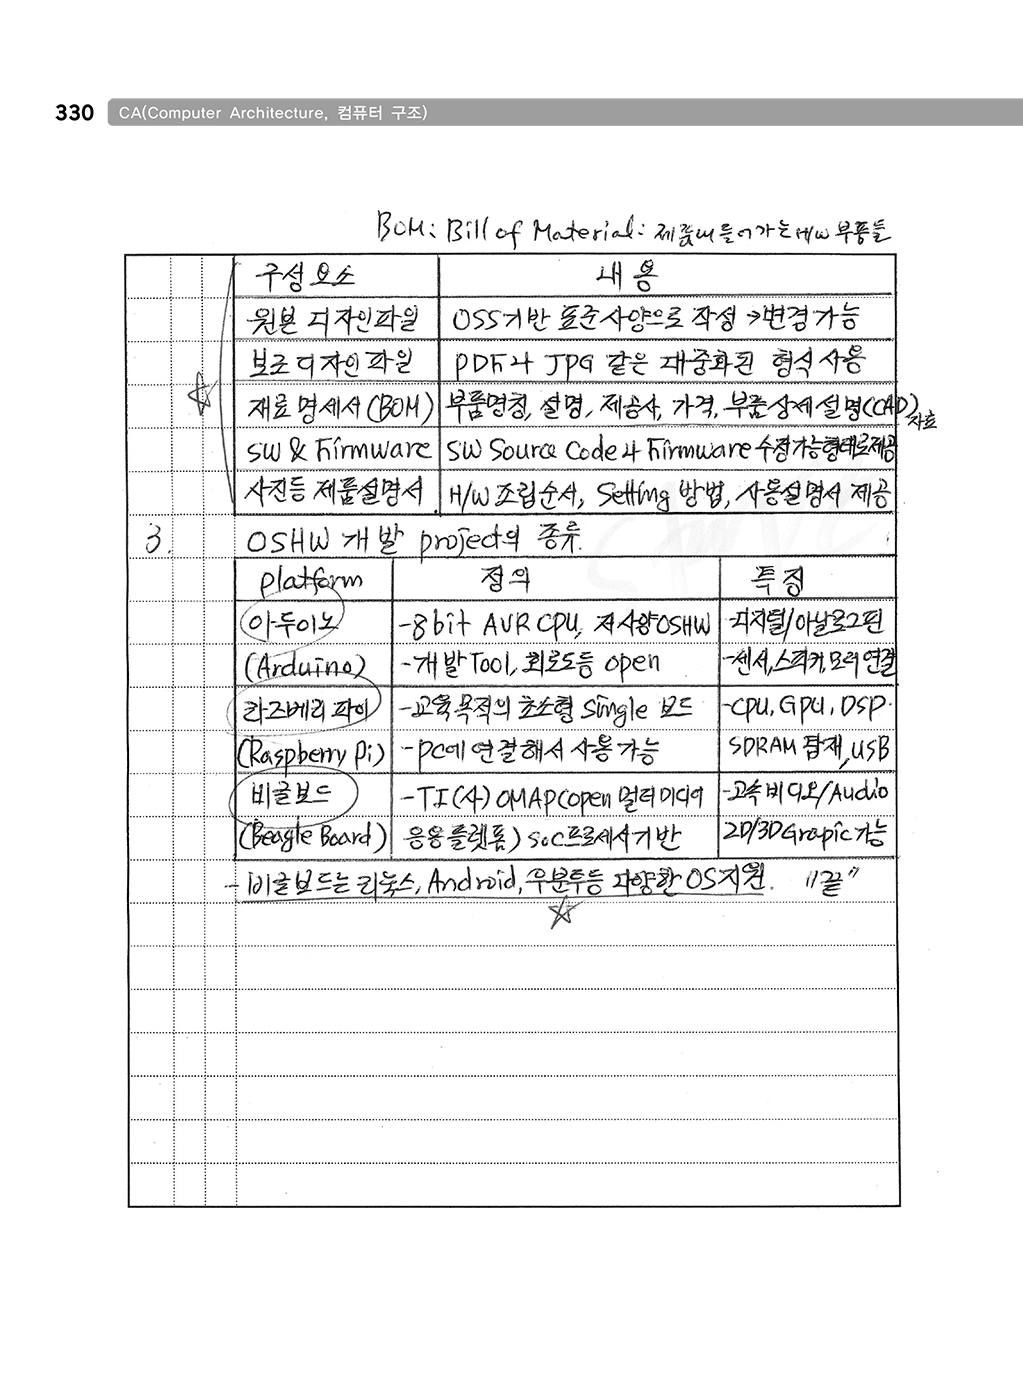 330 CA(Computer Architecture, 컴퓨터 구조)
BOM: Bill of Material: 제품에 들어가는 H/W 부품들
구성요소 내용
원본 디자인파일 OSS기반 표준사양으로 작성 →변경가능
보조 디자인 파일 PDF나 JPG 같은 대중화된 형식 사용
재료 명세서(BOM) 부품명칭, 설명, 제공사, 가격, 부품상세설명(CAD)자료
SW & Firmware SW Source Code나 Firmware 수정가능형태로제공
사진등 제품설명서 H/W 조립순서, Setting 방법, 사용설명서 제공
3. OSHW 개발 project의 종류.
platform 정의 특징
아두이노 -8bit AVR CPU, 저사양OSHW -디지털/아날로그핀
(Arduino) -개발Tool, 회로도등 open -센서,스피커,모터연결
라즈베리파이 -교육목적의 초소형 Single 보드 -CPU, GPU, DSP.
(Raspberry Pi) -PC에 연결해서 사용가능 SDRAM 탑재, USB
비글보드 -TI(사) OMAP(open 멀티미디어 -고속비디오/Audio
(Beagle Board) 응용플랫폼) SoC프로세서기반 2D/3D Grapic가능
- 비글보드는 리눅스, Android, 우분투등 다양한 OS지원. "끝"